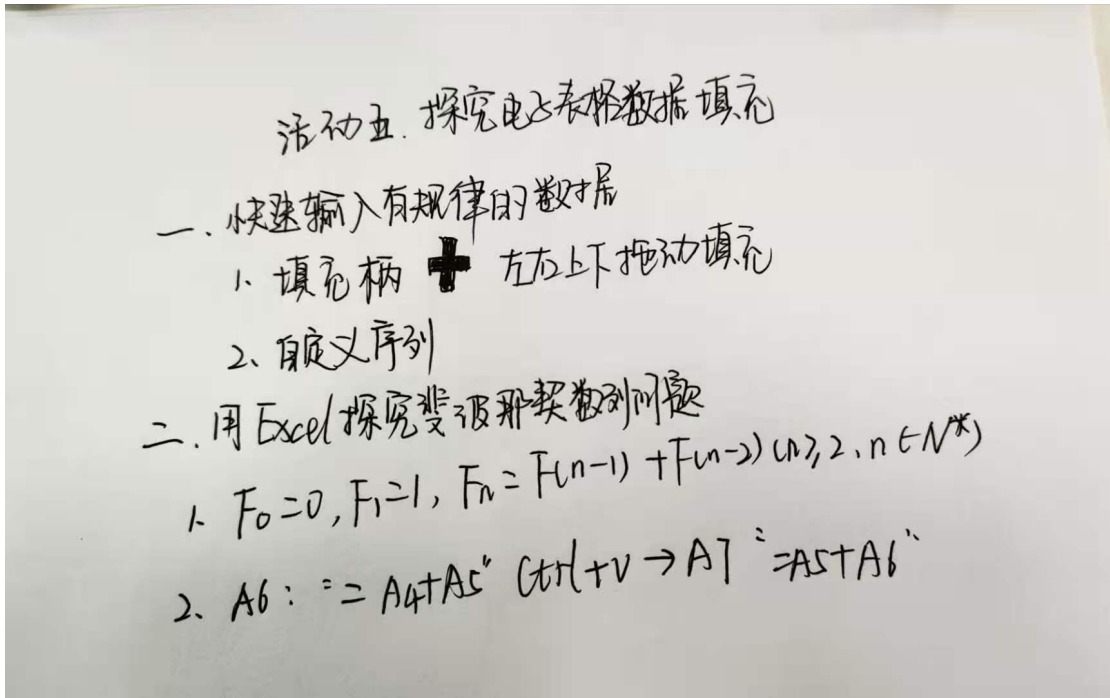 活动五. 探究电子表格数据填充
一、快速输入有规律的数据
1. 填充柄 ✚ 左右上下拖动填充
2、自定义序列
二、用Excel探究斐波那契数列问题
1. F₀=0, F₁=1, Fn=F(n-1)+F(n-2)(n≥2, n∈N*)
2、A6: "=A4+A5" Ctrl+V→A7 "=A5+A6"